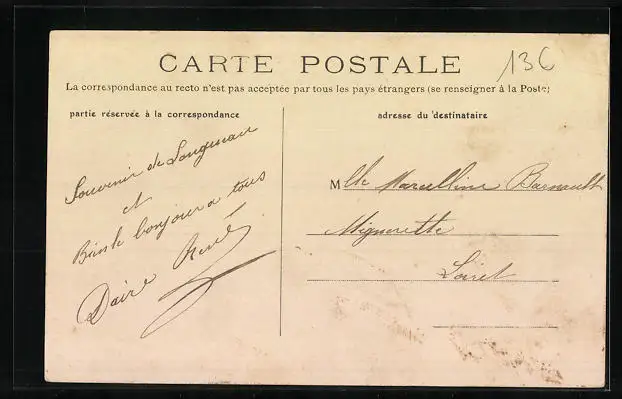 CARTE POSTALE
136
La correspondance au recto n'est pas acceptée par tous les pays étrangers (se renseigner à la Poste)
partie réservée à la correspondance
adresse du destinataire
Souvenir de Longueau
et
bonjour a tous
Daire René
Mlle Marcelline Barnault
Mignerette
Loiret